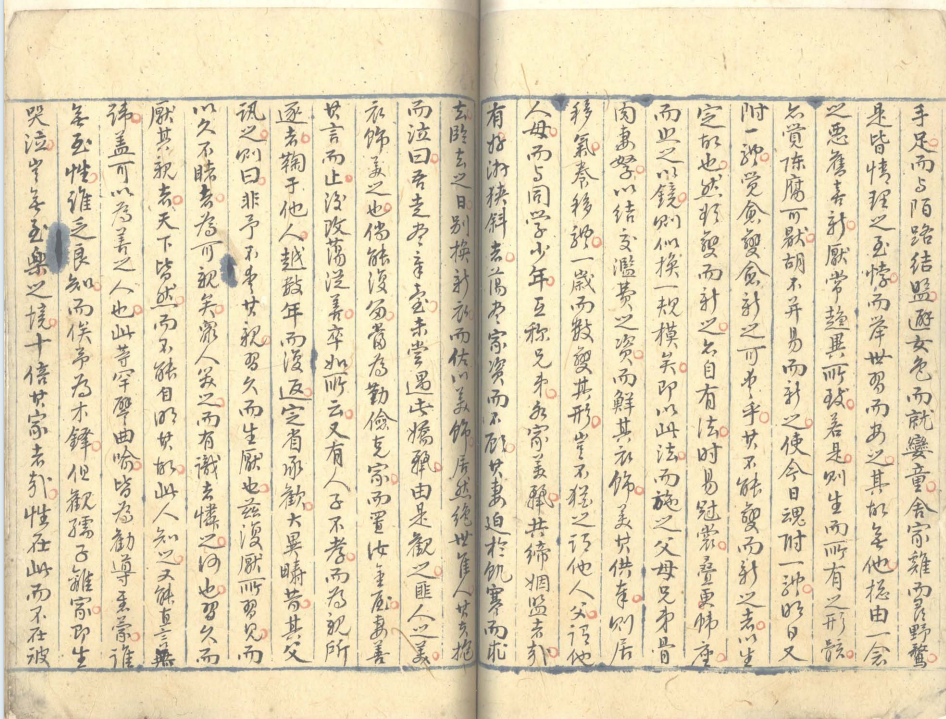 手足而与陌路结盟避女色而就孌童舍家雞而尋野鶩
是皆情理之至悖而举世習而安之其故無他総由一念
之悪舊喜新厭常趋異所致若是則生而所有之形骸
亦覚陈腐可厭胡不并易而新之使今日魂附一躰明日又
附一躰覚愈變愈新之可楽乎其不能變而新之者以生
定故也然欲變而新之亦自有法時易冠裳疊更帏座
而照之以鏡則似換一規模矣即以此法而施之父母兄弟骨
肉妻孥以结交濫費之資而鮮其衣飾美其供奉則居
移氣養移躰一歳而數變其形豈不猶之謂他人父謂他
人母而与同学少年互称兄弟各家美麗共缔姻盟者哉
有好游狭斜者荡尽家資而不顾其妻迫於飢寒而求
去臨去之日别換新衣而佐以美飾居然絶世隹人其夫抱
而泣曰吾走尽章臺未尝遇此嬌麗由是觀之匪人之美
衣飾美之也倘能復留當為勤儉克家而置汝金屋妻善
其言而止後改荡從善卒如所云又有人子不孝而為親所
逐者鞠于他人越數年而復返定省承歡大異疇昔其父
訊之則曰非予不孝其親習久而生厭也兹復厭所習見而
以久不睹者為可親矣衆人笑之而有識者憐之何也習久而
厭其親者天下皆然而不能自明其故此人知之又能直言無
諱盖可以為善人也此等罕譬曲喻皆為勸導至蒙誰
無至性誰乏良知而俟予為木鐸但觀孺子離家即生
哭泣豈無至樂之境十倍其家者哉性在此而不在彼